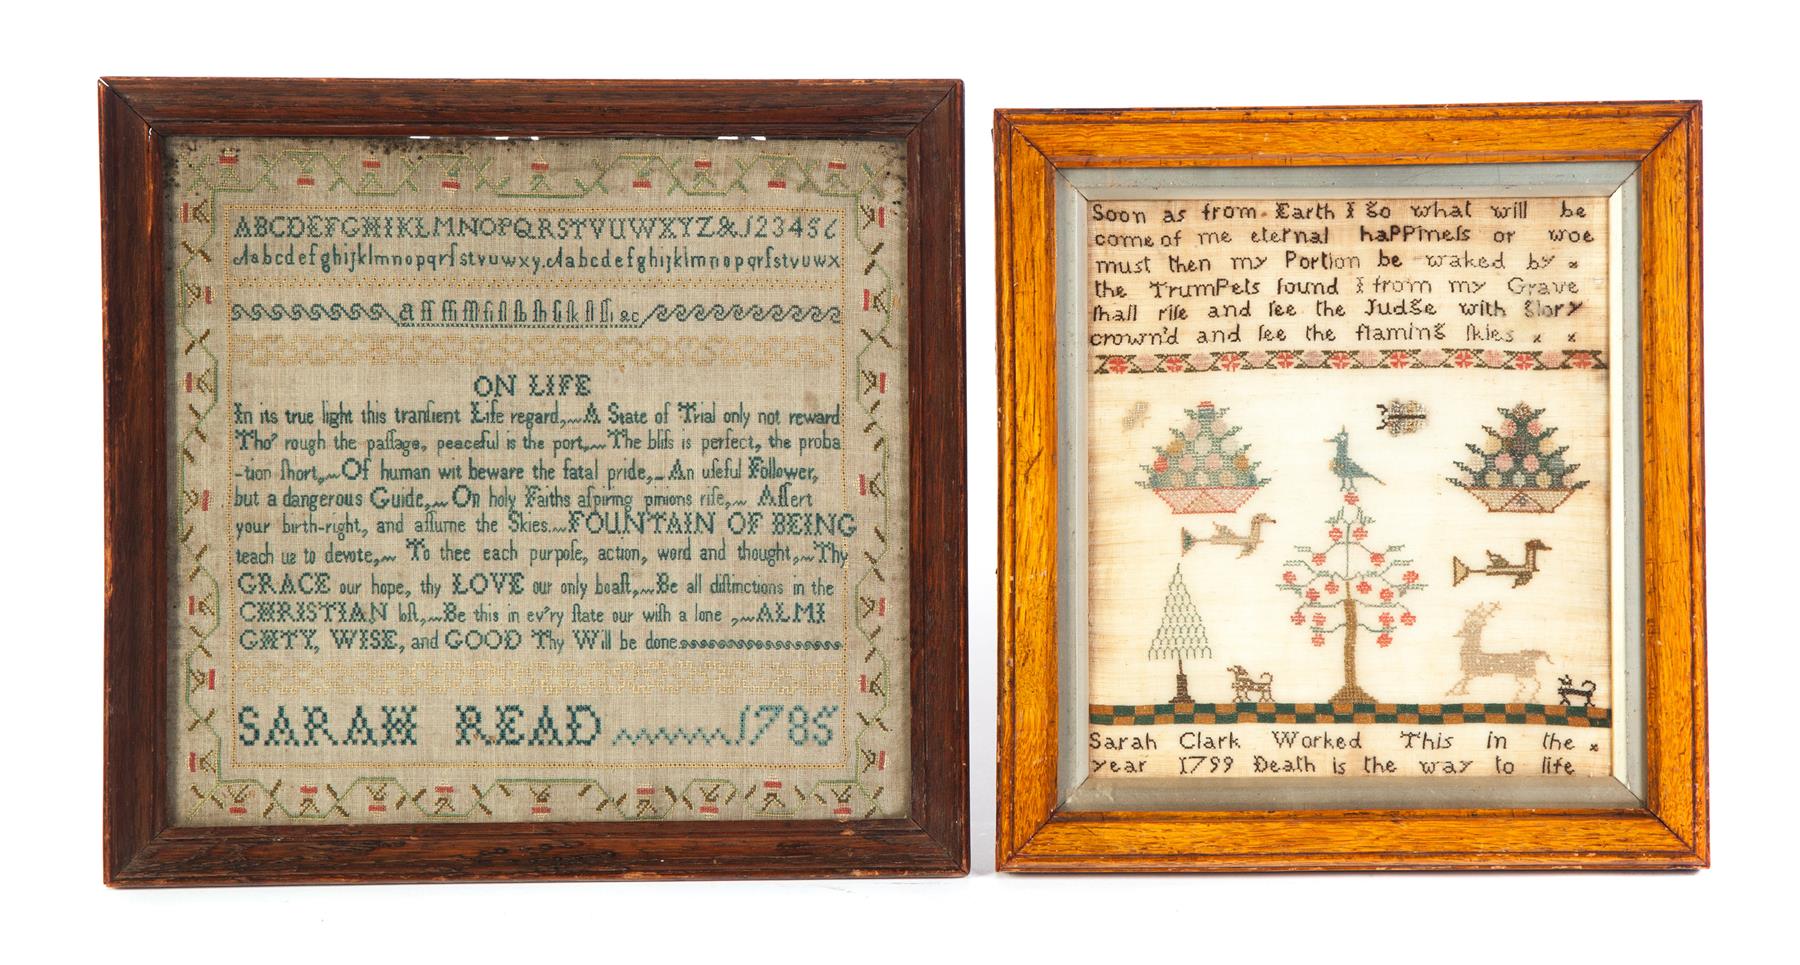 ABCDEFGHIKLMNOPQRSTVUWXYZ&123456
Aabcdefghijklmnopqrſstvuwxy.Aabcdefghijklmnopqrſstvuwx
&c
ON LIFE
In its true light this tranſient Life regard,~A State of Trial only not reward
Tho' rough the paſſage, peaceful is the port,~The bliſs is perfect, the proba
-tion ſhort,~Of human wit beware the fatal pride,~An uſeful Follower,
but a dangerous Guide,~On holy Faiths aſpiring pinions riſe,~Aſſert
your birth-right, and aſſume the Skies.~FOUNTAIN OF BEING
teach us to devote,~To thee each purpoſe, action, word and thought,~Thy
GRACE our hope, thy LOVE our only boaſt,~Be all diſtinctions in the
CHRISTIAN loſt,~Be this in ev'ry ſtate our wiſh a lone,~ALMI
GHTY, WISE, and GOOD Thy Will be done
SARAH READ 1785
Soon as from Earth I go what will be
come of me eternal haPPineſs or woe
must then my Portion be waked by
the TrumPets ſound I from my Grave
ſhall riſe and ſee the Judge with Glory
crown'd and ſee the flaming ſkies
Sarah Clark Worked This in the
year 1799 Death is the way to life